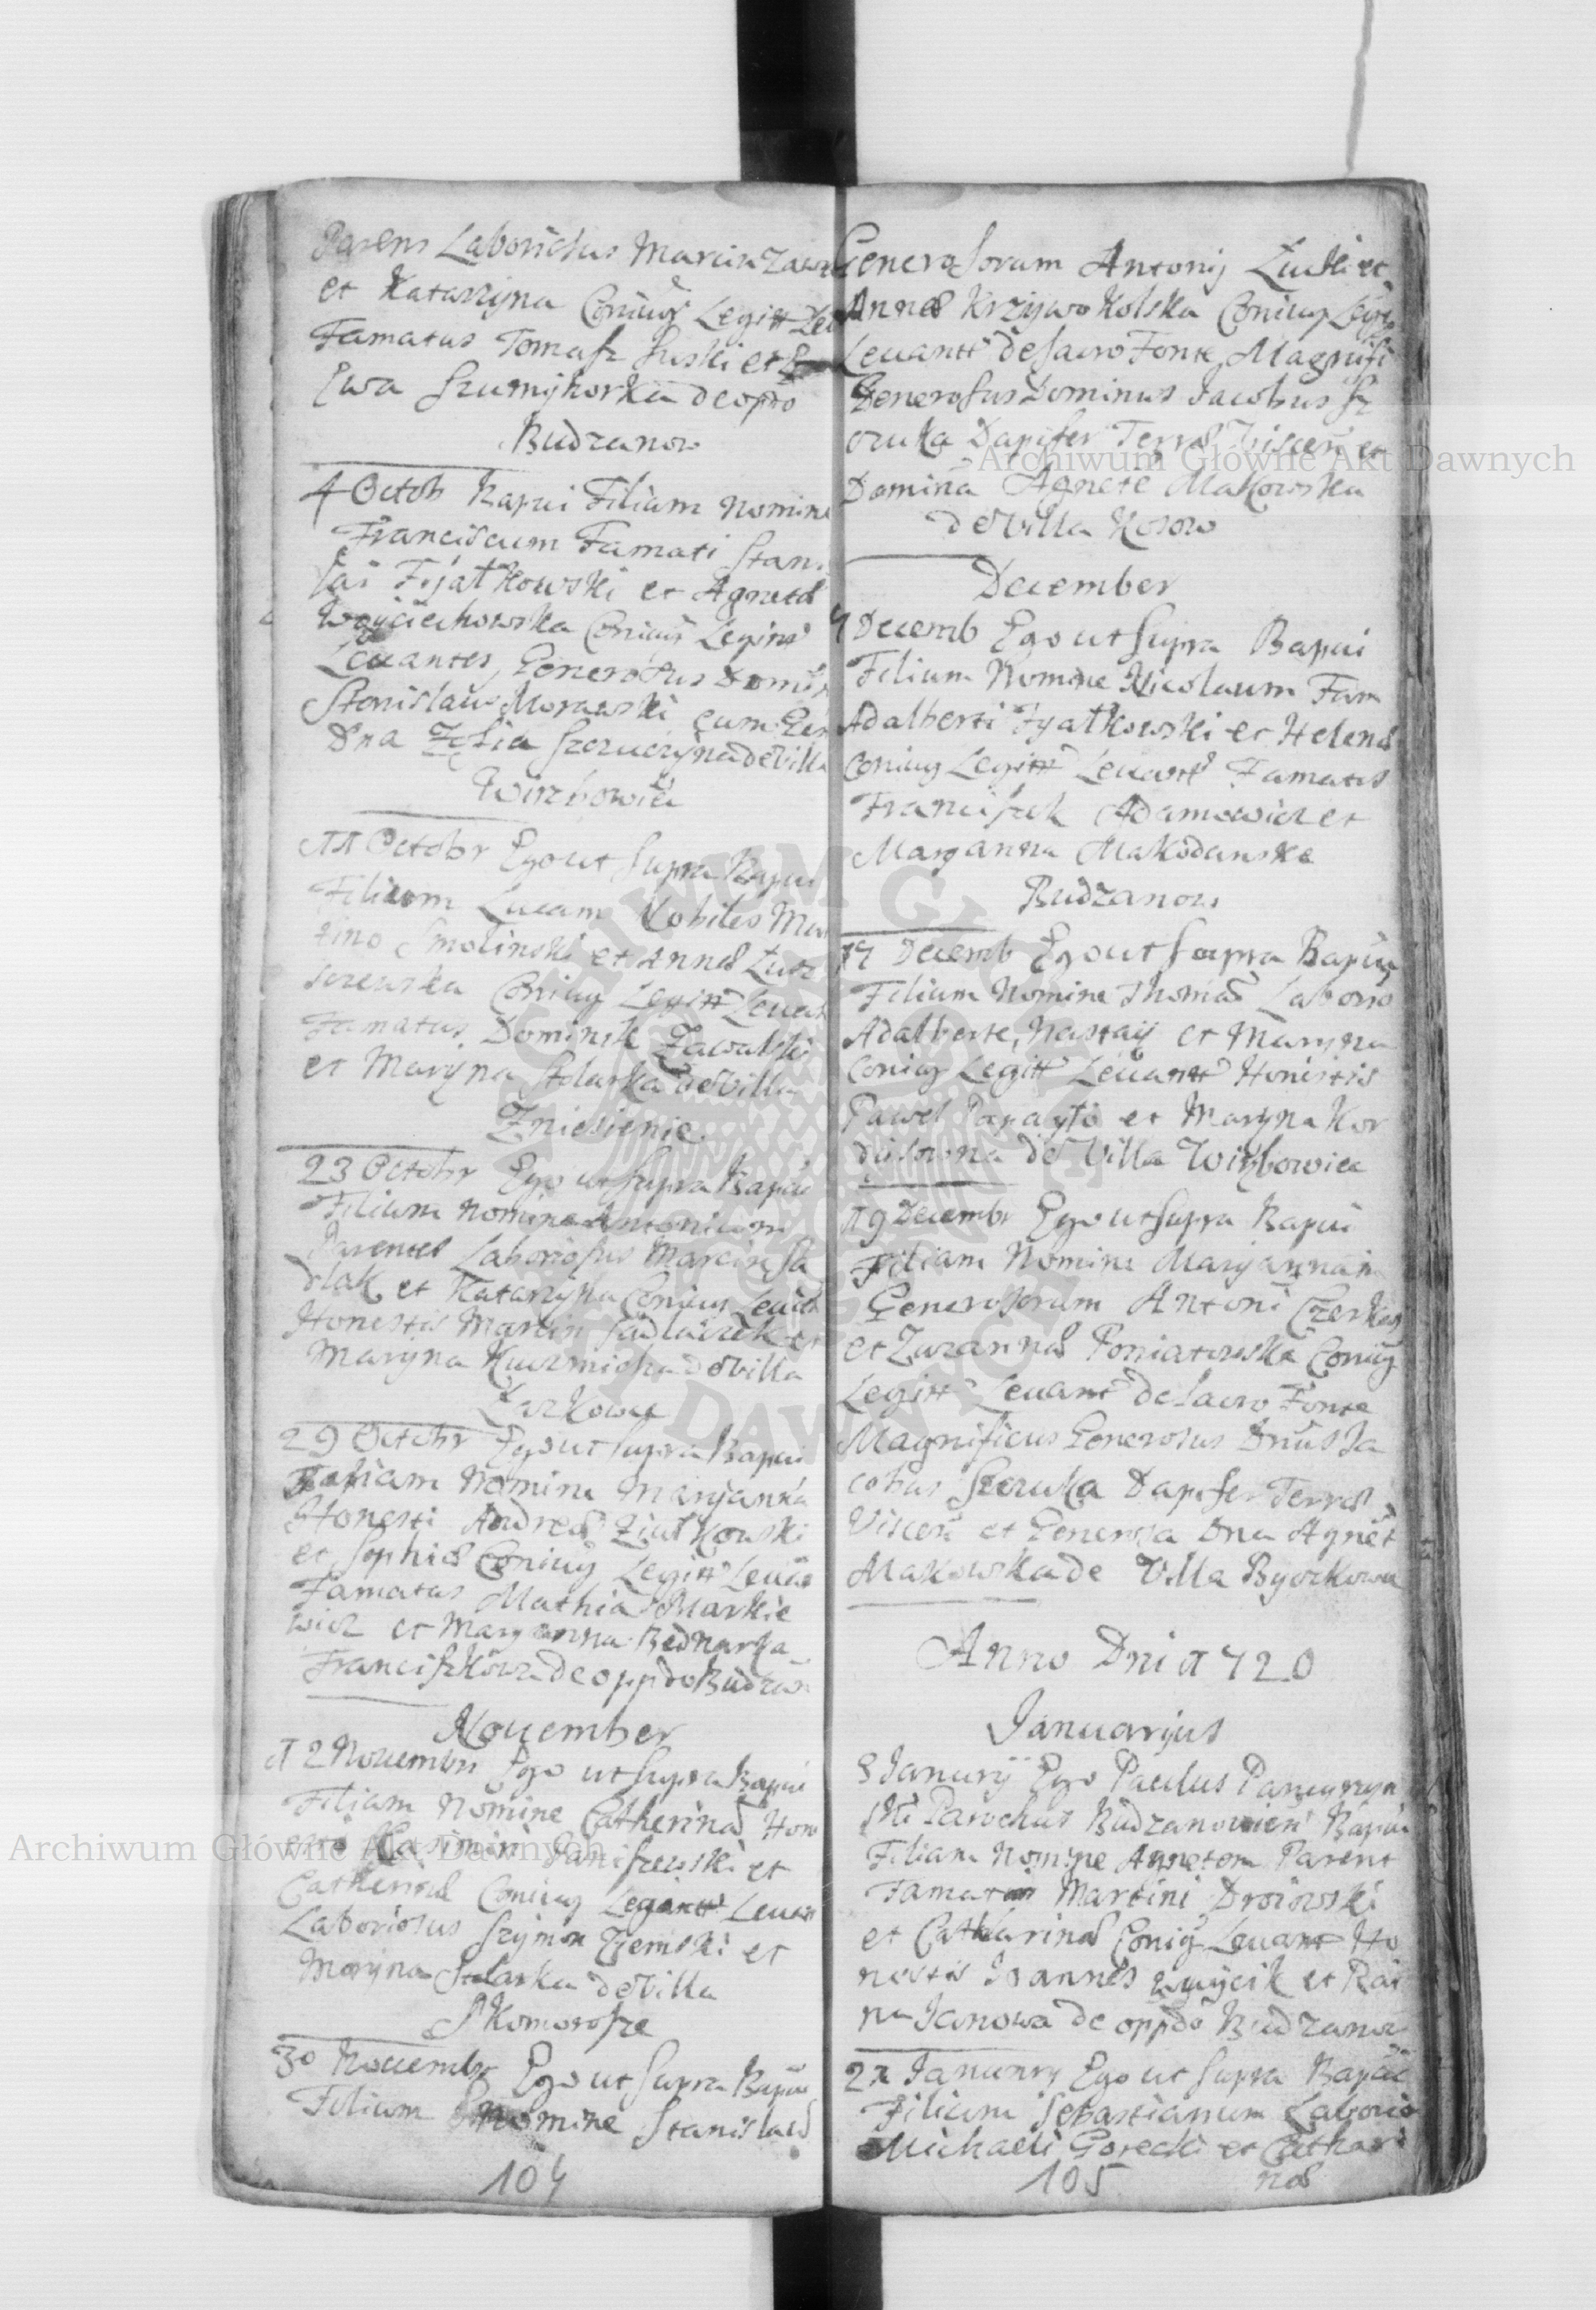 Parens Laboriosus Marcin Zaw
et Katarzyna Coniug Legitt Lev
Famatus Tomasz Suski et
Ewa Szumyhorka de oppdo
Budzanow
4 Octob Bapui Filium Nomine
Franciscum Famati Stani
lai Fijałkowski et Agnetae
Woyciechowska Coniug Legitt
Levantes, Generosus Domin
Stanislaus Morawski cum Gen
Dna Zofia SzczucZyna de Villa
Wirzbowiec
11 Octobr Ego ut supra Bapui
Filium Lucam Nobiles Mar
tino Smolinski et Annae
Coniug Legitt Levan
Famatus Dominik Zawalski
et Maryna Stolarka de Villa
Zniesienie
23 Octobr Ego ut supra Bapui
Filium Nomine Antonium
Parentes Laboriosus Marcin Sa
dlak et Katarzyna Coniug Levan
Honestis Marcin Sadlaczek et
Maryna Kuzmicha de Villa
29 Octobr Ego ut supra Bapui
Filiam Nomine Maryanna
Honesti Andreae Ziułkowski
et Sophiae Coniug Legitt Levan
Famatus Mathia Markie
wicz et Maryanna Bednarka
Franciszkowa de oppdo Budzan
November
12 Novembri Ego ut supra Bapui
Filiam Nomine Catherina Hone
Kasimiri et
Catherinae Coniug Legitt Levan
Laboriosus Szymon Zięmski et
Maryna Stolarka de Villa
Skomorosze
30 Novembr Ego ut supra Bapui
Filium Nomine Stanislaus
104
Generosorum Antonij Łucki et
Annae Krzywokolska Coniug Legit
Levantt de Sacro Fonte, Magnifi
Generosus Dominus Jacobus Sz
czuka Dapifer Terrae Viscen et
Domina Agnete Makowska
de Villa Kosow
December
7 Decemb Ego ut supra Bapui
Filium Nomine Nicolaum Fam
Adalberti Fyałkowski et Helenae
Coniug Legitt Levantt Famatus
Franciszek Adamowicz et
Maryanna Makodanska
Budzanow
17 Decemb Ego ut supra Bapui
Filium Nomine Thomas Laborio
Adalberte, Nastaij et Maryna
Coniug Legitt Levantt Honestis
Pawel Papayło et Maryna Kor
de Villa Wirzbowiec
19 Decembr Ego ut supra Bapui
Filiam Nomine Maryannam
Generosorum Antoni Czerkas
et Zuzannae Poniatowska Coniug
Legitt Levant de Sacro Fonte
Magnificus Generosus Dnus Ja
cobus Szczuka Dapifer Terrae
Viscen et Generosa Dna Agnet
Makowska de Villa Byczkowce
Anno Dni 1720
Januarijus
8 Janurij Ego Paulus Panegyryn
ski Parochus Budzanovien Bapui
Filiam Nomine Agnetem Parent
Famatus Martini Droiowski
et Catharinae Coniug Levant Ho
nestis Joannes Woycik et Rai
na Janowa de oppdo Budzanow
21 Janunry Ego ut supra Bapui
Filium Sebastianum Laborio
Michaeli Gorecki et Cathari
105 nae
Archiwum Główne Akt Dawnych
Archiwum Główne Akt Dawnych
ARCHIWUM GŁÓWNE AKT DAWNYCH